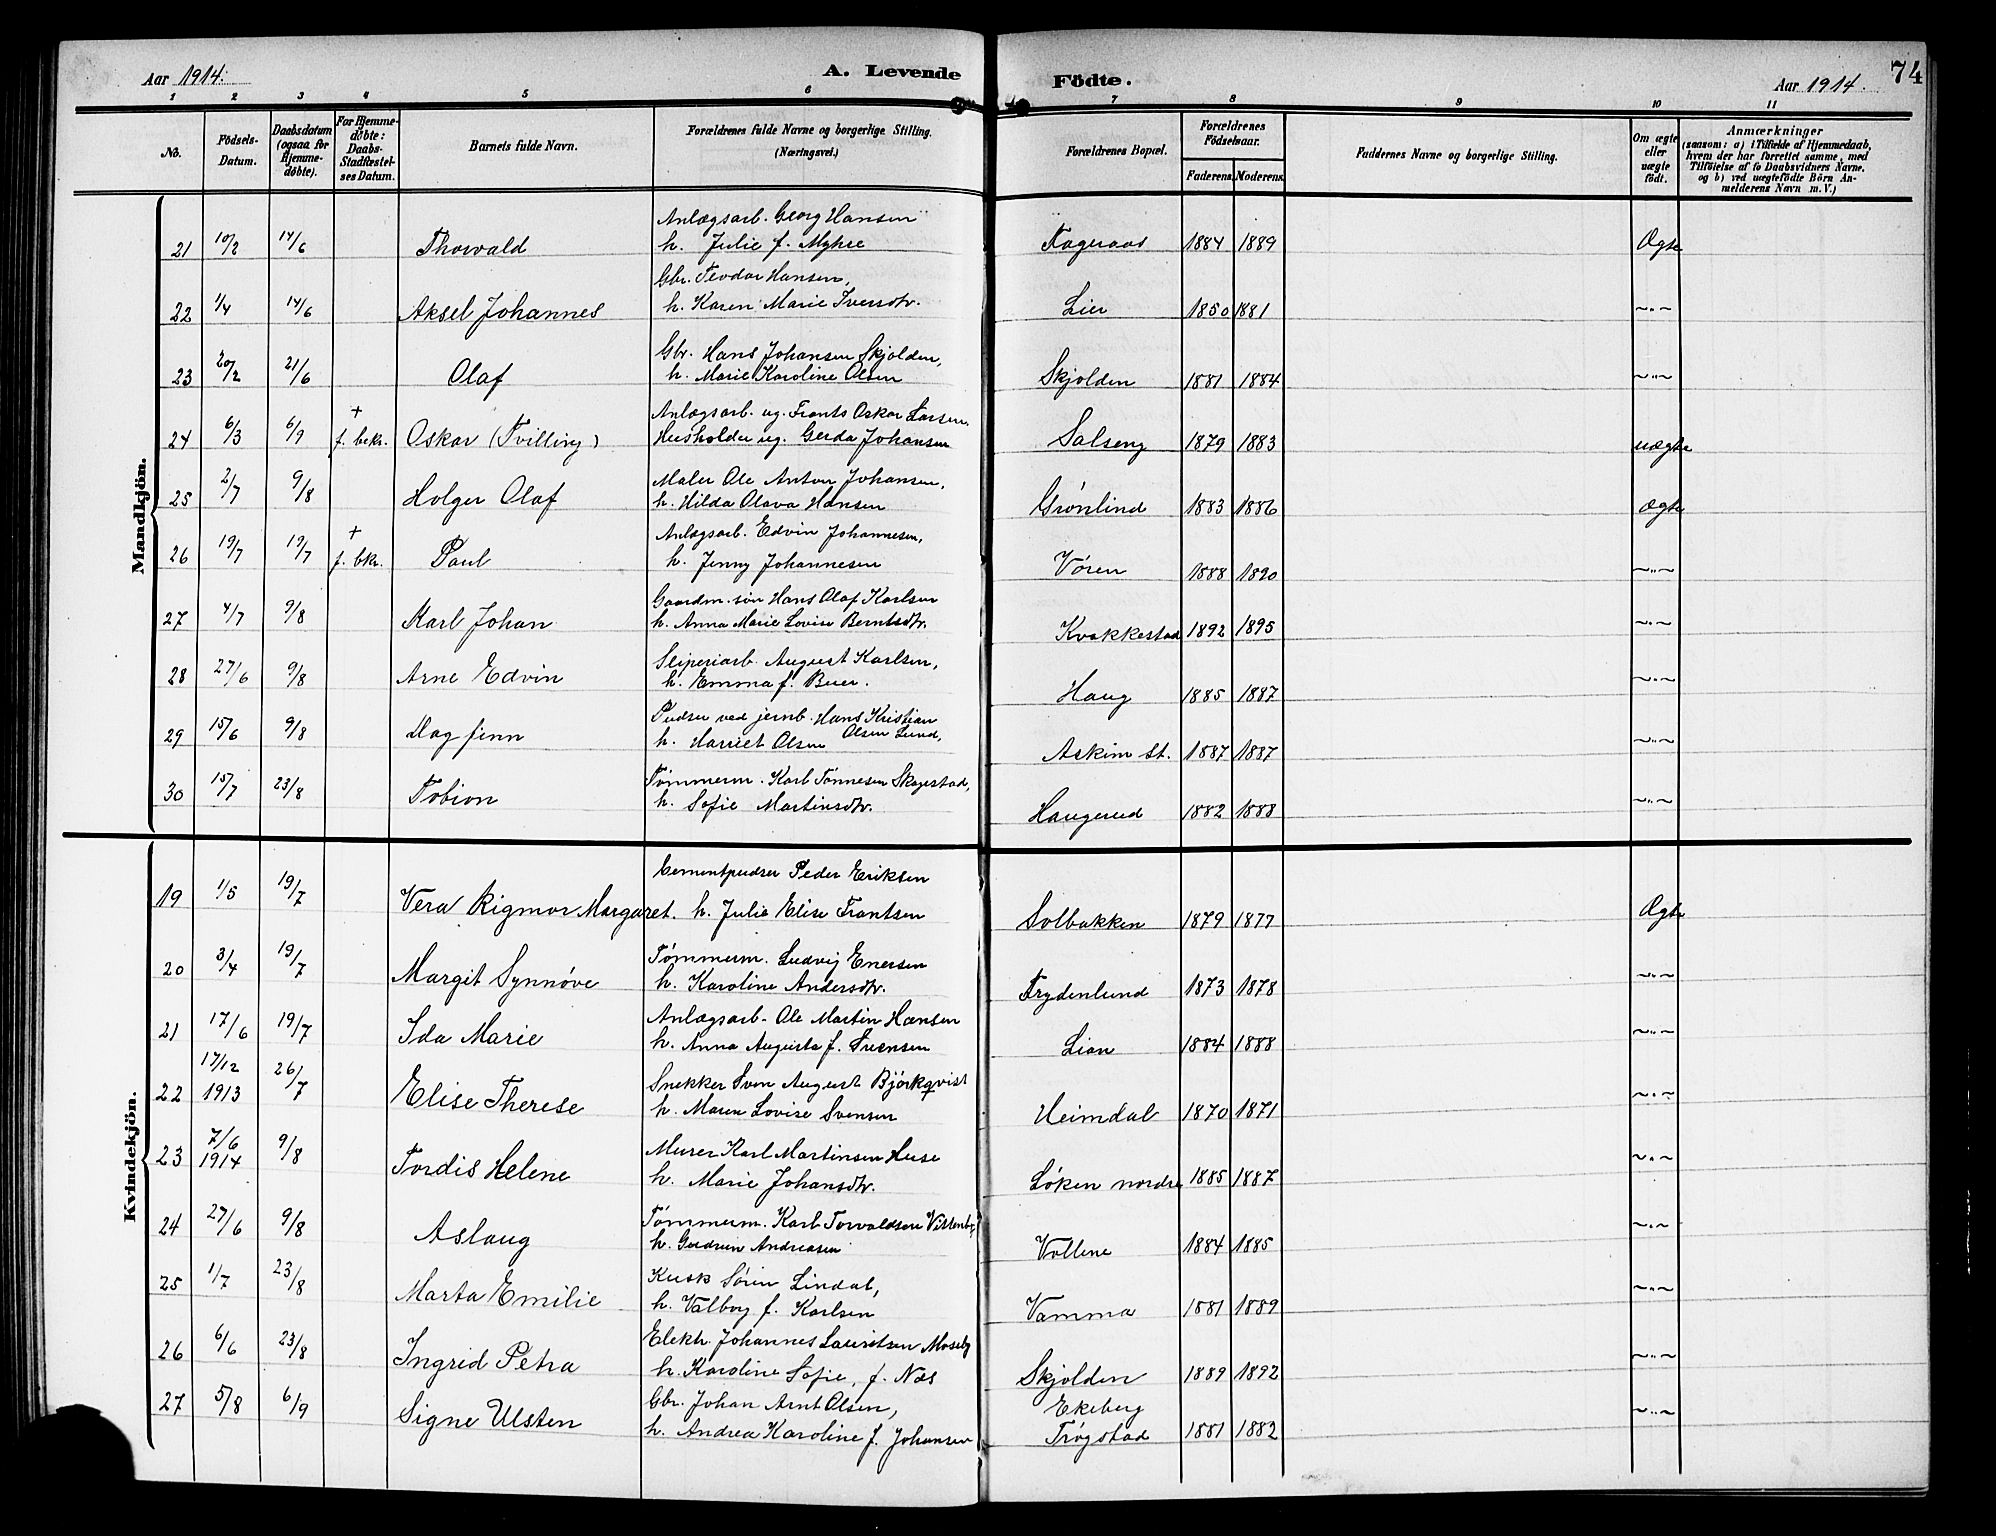 Aar 1914.
A. Levende
Födte.
Aar 1914.
74
1 2 3 4 5 6 7 8 9 10 11
No.
Födsels-Datum.
Daabsdatum (ogsaa for Hjemmedøbte).
For Hjemmedøbte: Daabs-Stadfæstelses Datum.
Barnets fulde Navn.
Forældrenes fulde Navne og borgerlige Stilling.
(Næringsvei.)
Forældrenes Bopæl.
Forældrenes Födselsaar.
Faderens. Moderens.
Faddernes Navne og borgerlige Stilling.
Om ægte eller uægte födt.
Anmærkninger
(saasom: a) i Tilfælde af Hjemmedaab, hvem der har forrettet samme, med Tilföielse af to Daabsvidners Navne, og b) ved uægtefödte Börn Anmelderens Navn m. V.)
Mandkjön.
Anlægsarb. Georg Hansen
21 10/2 14/6 Thorvald h. Julie f. Myhre Fageraas 1884 1889 Ægte
Gbr. Teodor Hansen,
22 1/4 14/6 Aksel Johannes h. Karen Marie Iversdtr. Lier 1850 1881 ~"~
Gbr. Hans Johansen Skjolden,
23 20/2 21/6 Olaf h. Marie Karoline Olsen Skjolden 1881 1884 ~"~
+ Anlægsarb. ug. Frants Oskar Larsen,
24 6/3 6/9 f. bekr. Oskar (Tvilling) Husholder ug. Gerda Johansen Solseng 1879 1883 uægte
Maler Ole Anton Johansen,
25 2/7 9/8 Holger Olaf h. Hilda Olava Hansen Grønlind 1883 1886 ægte
+ Anlægsarb. Edvin Johannesen,
26 19/7 19/7 f. bkr. Paul h. Jenny Johannesen Vøren 1888 1890 ~"~
Gaardm. søn Hans Olaf Karlsen
27 4/7 9/8 Karl Johan h. Anna Marie Lovise Berntsdtr. Kvakkestad 1892 1895 ~"~
Sliperiarb. August Karlsen,
28 27/6 9/8 Arne Edvin h. Emma f. Buer. Haug 1885 1887 ~"~
Pudser ved jernb. Hans Kristian
29 15/6 9/8 Dag finn h. Harriet Olsen Olsen Lund, Askim st. 1887 1887 ~"~
Tømmerm. Karl Tønnesen Skagestad,
30 15/7 23/8 Tobion h. Sofie Martinsdtr. Haugerud 1882 1888 ~"~
Kvindekjön.
Cementpudser Peder Eriksen
19 1/5 19/7 Vera Rigmor Margaret. h. Julie Elise Frantsen Solbakken 1879 1877 Ægte
Tømmerm. Ludvig Enersen
20 3/4 19/7 Margit Synnøve h. Karoline Andersdtr. Frydenlund 1873 1878 ~"~
Anlægsarb. Ole Martin Hansen
21 17/6 19/7 Ida Marie h. Anna Augusta f. Svensen Lian 1884 1888 ~"~
17/12 Snekker Sven August Bjørkqvist
22 1913 26/7 Elise Therese h. Maren Lovise Svensen Heimdal 1870 1871 ~"~
7/6 Murer Karl Martinsen Huse
23 1914 9/8 Tordis Helene h. Marie Johansdtr. Løken nordre 1885 1887 ~"~
Tømmerm. Karl Torvaldsen
24 27/6 9/8 Aslaug h. Gudrun Andreasen Vollene 1884 1885 ~"~
Kusk Sørin Lindal,
25 1/7 23/8 Marta Emilie h. Valborg f. Karlsen Vamma 1881 1889 ~"~
Elektr. Johannes Lauritsen Moseby
26 6/6 23/8 Ingrid Petra h. Karoline Sofie, f. Næs Skjolden 1889 1892 ~"~
Gbr. Johan Arnt Olsen, Ekeberg
27 5/8 6/9 Signe Ulsten h. Andrea Karoline f. Johansen Trøgstad 1881 1882 ~"~